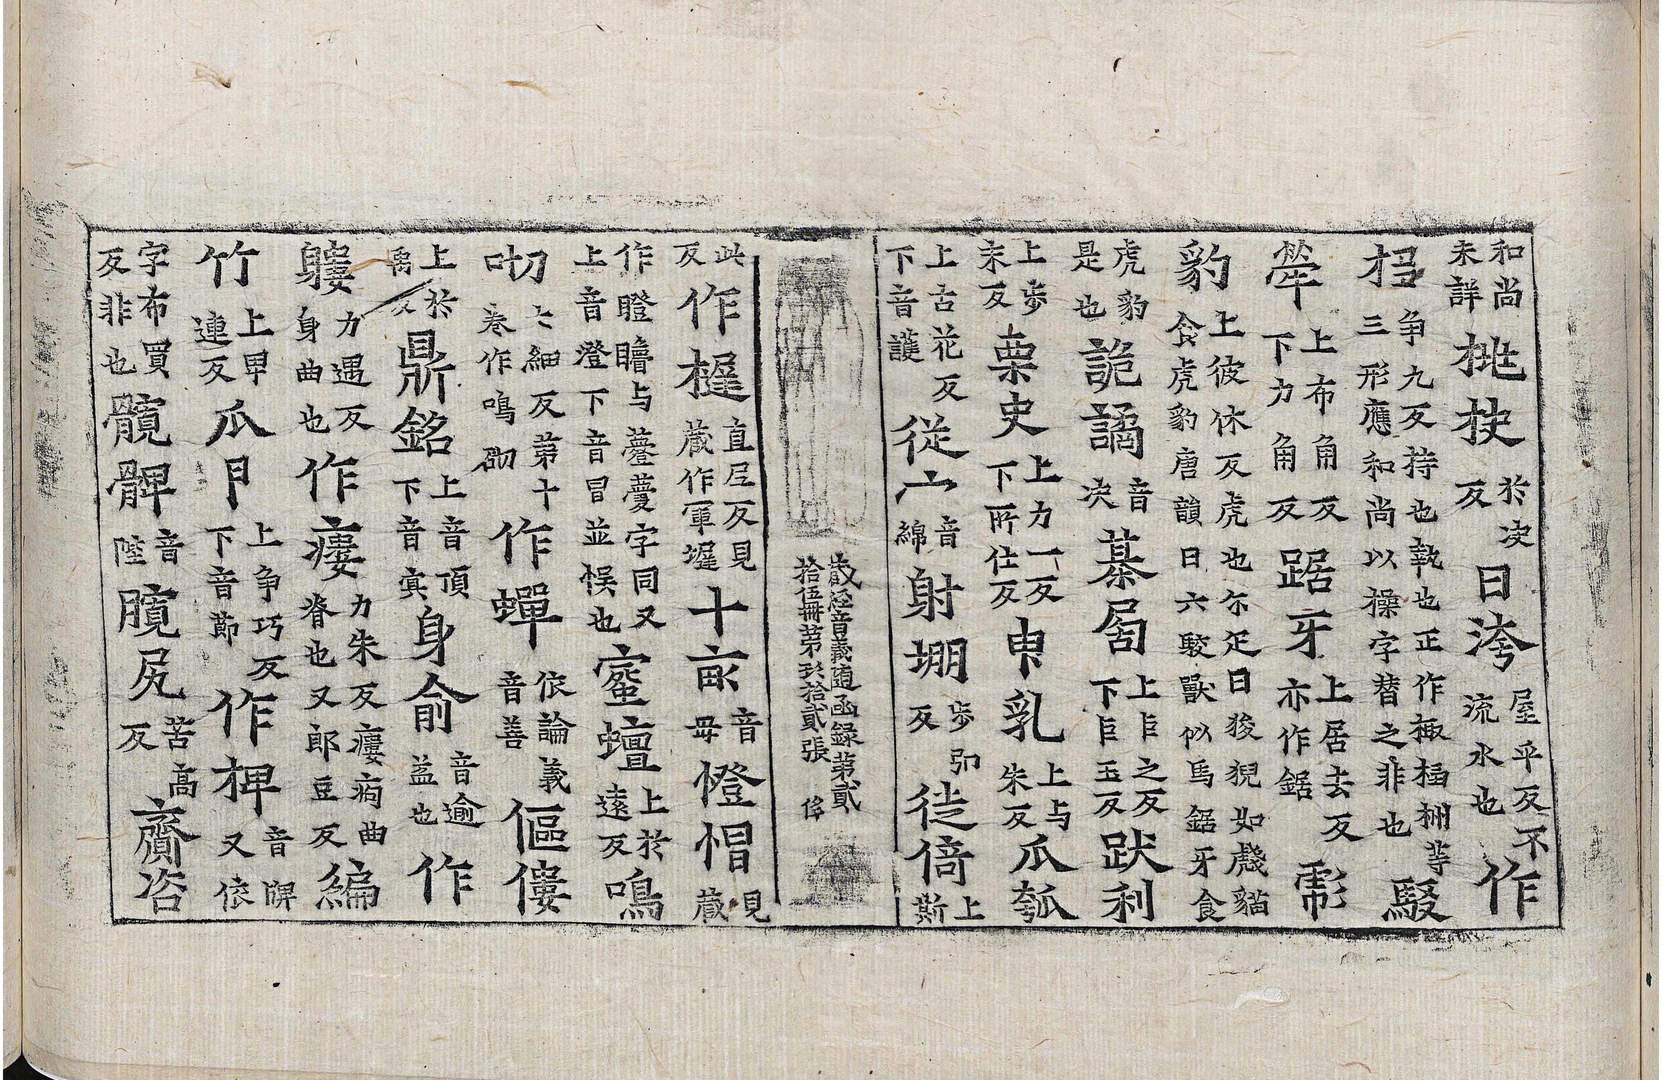 和尚未詳桃抰於决反曰洿屋乎反不流水也作
𢱧争九反持也執也正作掫𢱧棚等三形應和尚以操字替之非也駁
犖上布角反下力角反踞牙上居去反亦作鋸彪
豹上彼休反虎也尓疋曰狻猊如虥猫食虎豹唐韻曰六駮獸似馬鋸牙食
虎豹是也詭譎音决綦局上巨之反下巨玉反趺利
上歩末反栗史上力一反下所仕反申乳上与朱反瓜瓠
上古花反下音護從宀音綿射堋歩卯反徙倚上斯
藏經音義隨函録第貳
拾伍冊第玖拾貳張 俊
此反作樨直尼反見藏作軍墀十畝音母憕㡌見藏
作瞪矒与蹬㝱字同又上音澄下音冒並悮也蜜蟺上於遠反鳴
叻七細反第十卷作鳴砌作蟬依論義音善傴僂
上於禹反鼎銘上音頂下音㝠身俞音逾益也作
軁力遇反身曲也作瘻力朱反瘻痀曲脊也又郎豆反編
竹上卑連反瓜爪上争巧反下音節作椑音牌又依
字布買反非也髖髀音陛臗尻苦高反齎咨